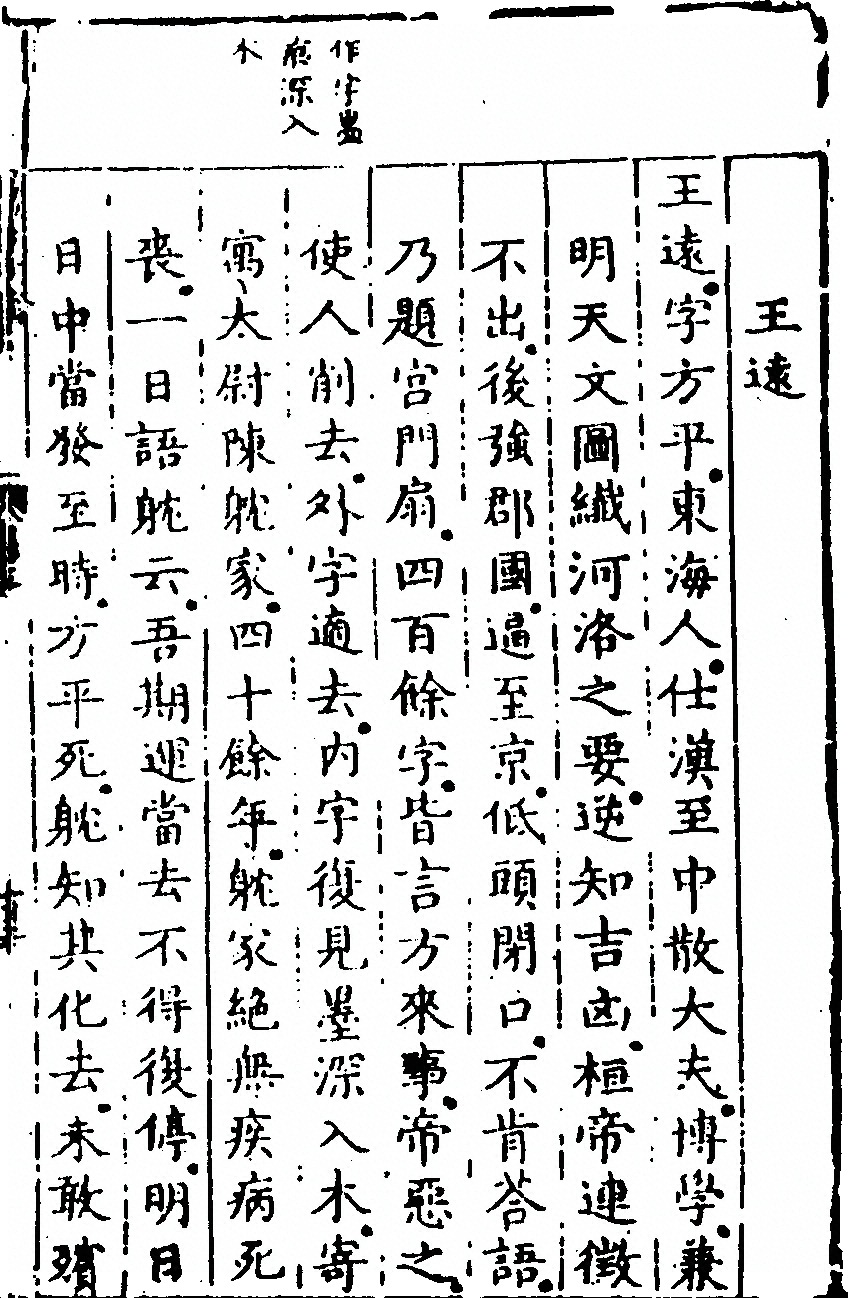 作字墨
應深入
木
王遠
王遠字方平東海人仕漢至中散大夫博學兼
明天文圖纖河洛之要逆知吉凶桓帝連徵
不出後強郡國逼至京低頭閉口不肯荅語
乃題宮門扇四百餘字皆言方來事帝惡之
使人削去外字適去內字復見墨深入木寄
寓太尉陳躭家四十餘年躭家絕無疾病死
喪一日語躭云吾期運當去不得復停明日
日中當發至時方平死躭知其化去未敢殯